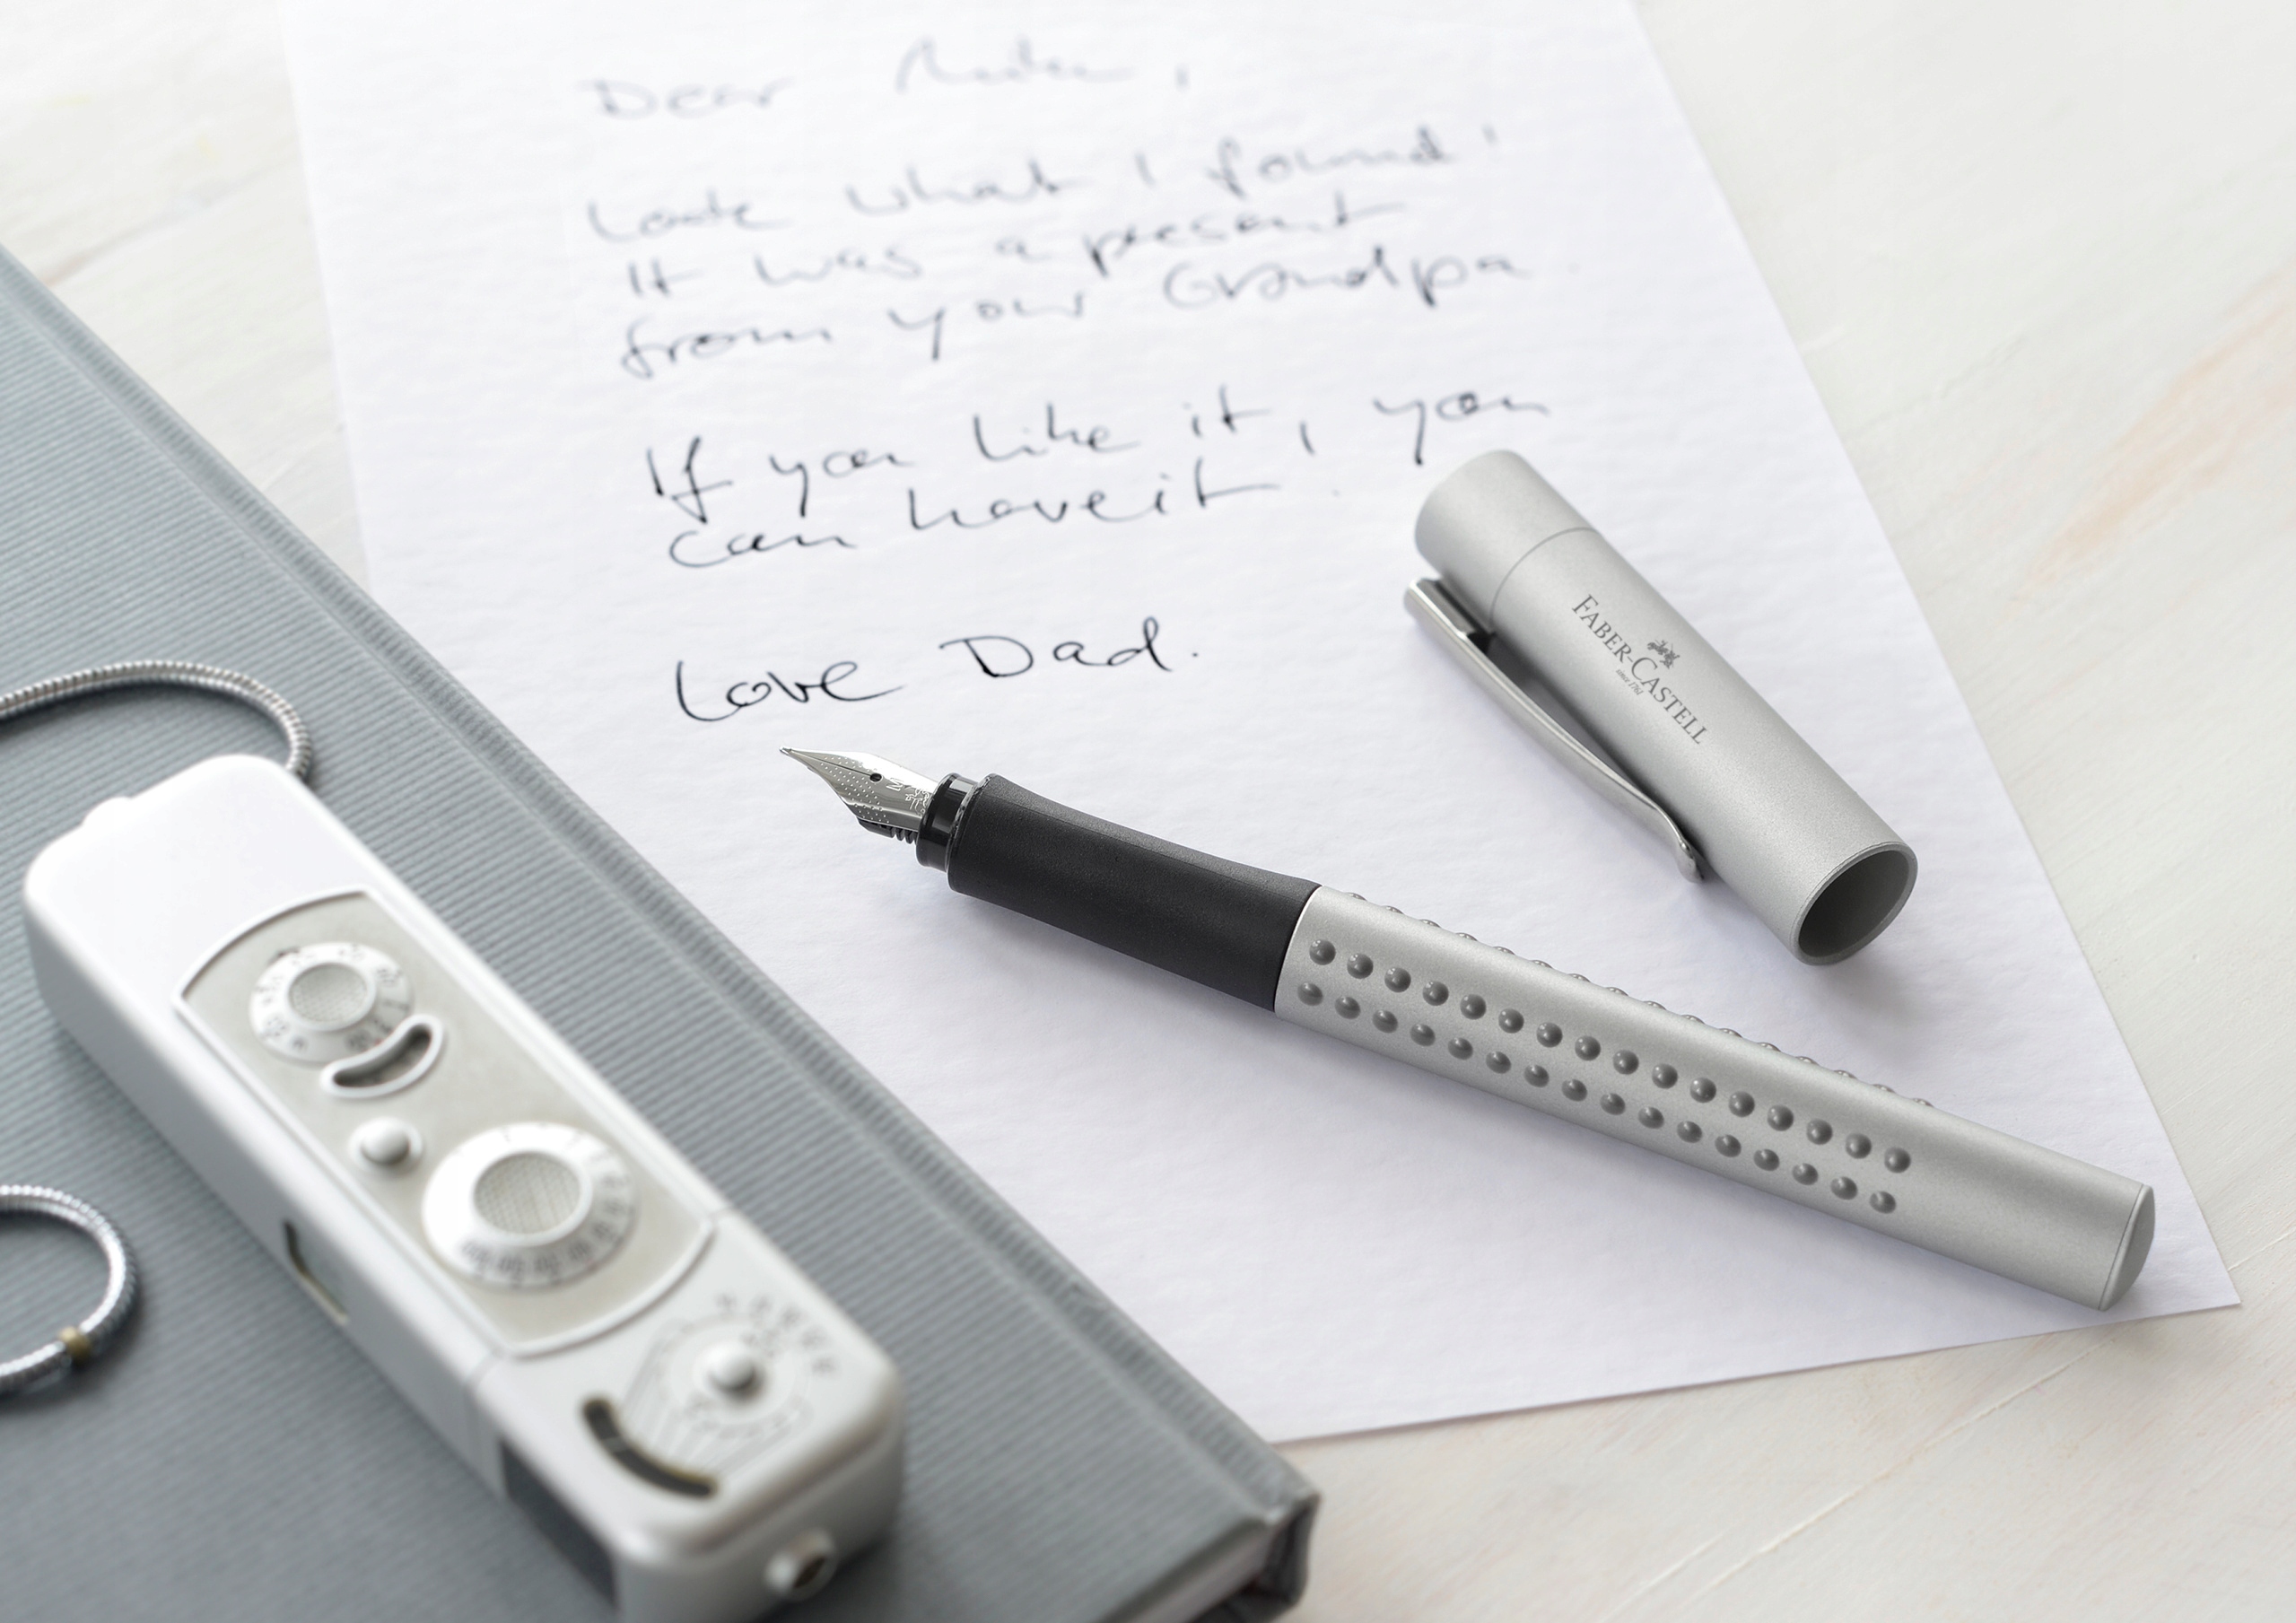 Dear
Look what I found!
It was a present
from your Grandpa.
If you like it, you
can have it.
Love Dad.
FABER-CASTELL
since 1761
M